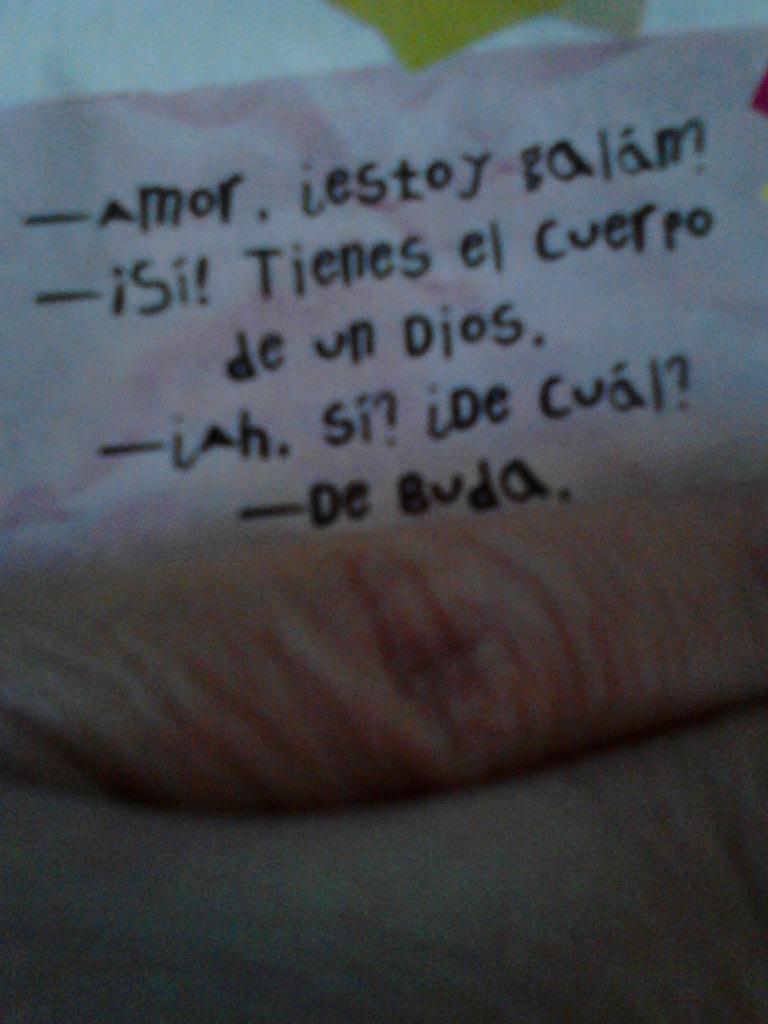 —Amor. ¿estoy galám?
—¡Sí! Tienes el cuerpo
de un Dios.
—¿Ah. sí? ¿De cuál?
—De Buda.